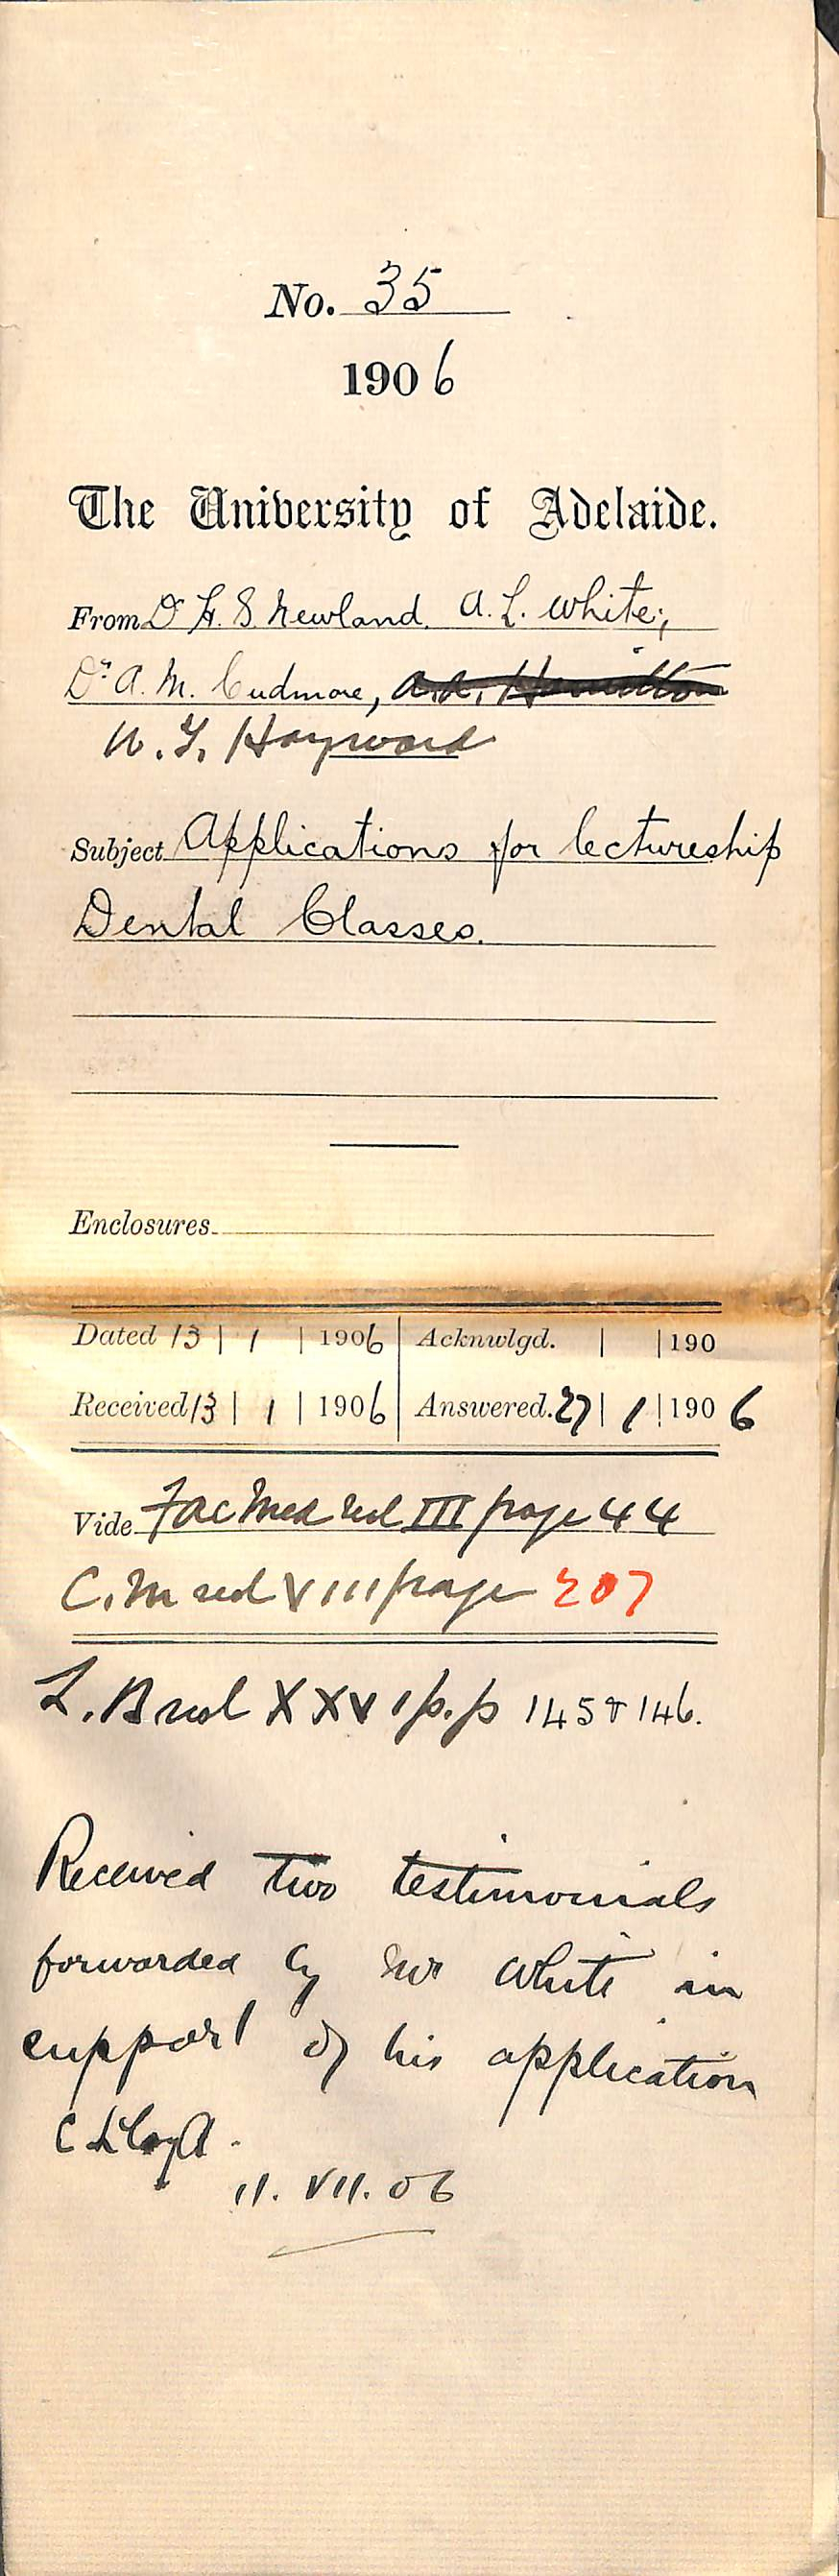 No. 35
1906
The University of Adelaide.
From Dr H. S. Newland. A. L. White;
Dr A. M. Cudmore, A.A. Hamilton
W. T. Hayward
Subject Applications for lectureship
Dental Classes.
Enclosures
Dated 13 | 1 | 1906 | Acknwlgd. | | 190
Received 13 | 1 | 1906 | Answered. 27 | 1 | 1906
Vide Fac Med vol III page 44
C. M vol VIII page 207
L. B vol XXVI p.p 145 & 146.
Received two testimonials
forwarded by Mr White in
support of his application
C Lloyd.
11. VII. 06